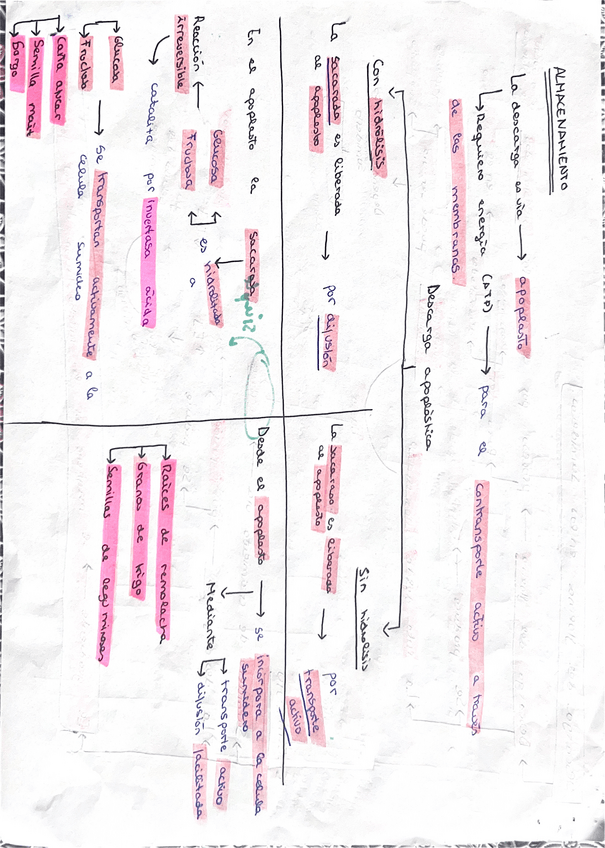 ALMACENAMIENTO
La descarga es vía → apoplasto
Requiere energía (ATP) → para el contransporte activo a través
de las membranas.
Descarga apoplástica
Con hidrólisis
Sin hidrólisis
La sacarada es liberada → por difusión
al apoplasto
La sacarosa es liberada → por transporte
al apoplasto activo
En el apoplasto la sacarosa
es hidrolizada
a
Glucosa
Fructosa
Reacción
irreversible
cataliza por invertasa ácida
Glucosa
Fructosa
→ se transportan activamente a la
célula sumidero
Caña azucar
Semilla maíz
Sorgo
Desde el apoplasto → se incorpora a la célula
sumidero
Mediante
transporte activo
difusión facilitada
Raíces de remolacha
Granos de trigo
Semillas de leguminosas